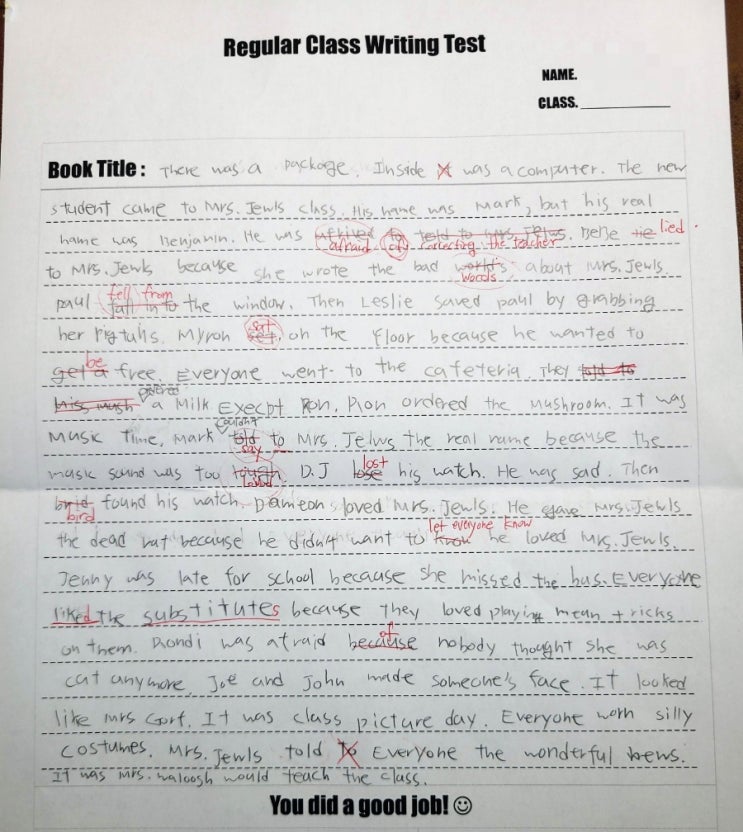 Regular Class Writing Test
NAME.
CLASS.
Book Title : There was a package. Inside was a computer. The new
student came to Mrs. Jewls class. His name was Mark, but his real
name was Benjamin. He was afraid of correcting the teacher. Bebe lied.
to Mrs. Jewls because she wrote the bad words about Mrs. Jewls
paul fell from the window. Then Leslie saved paul by grabbing
her pigtails. Myron sat on the floor because he wanted to
be free. Everyone went to the cafeteria. They
ordered a Milk Execpt Ron. Ron ordered the Mushroom. It was
Music time, Mark couldn't say to Mrs. Jelws the real name because the
music sound was too loud. D.J lost his watch. He was sad. Then
bird found his watch. Dameon loved Mrs. Jewls. He gave Mrs. Jewls
the dead rat because he didn't want to let everyone know he loved Mrs. Jewls.
Jenny was late for school because she missed the bus. Everyone
liked the substitutes because they loved playing mean tricks
on them. Rondi was afraid of nobody thought she was
cat anymore. Joe and John made someone's face. It looked
like Mrs Gorf. It was class picture day. Everyone worn silly
costumes. Mrs. Jewls told Everyone the wonderful news.
It was Mrs. waloosh would teach the class.
You did a good job! ☺